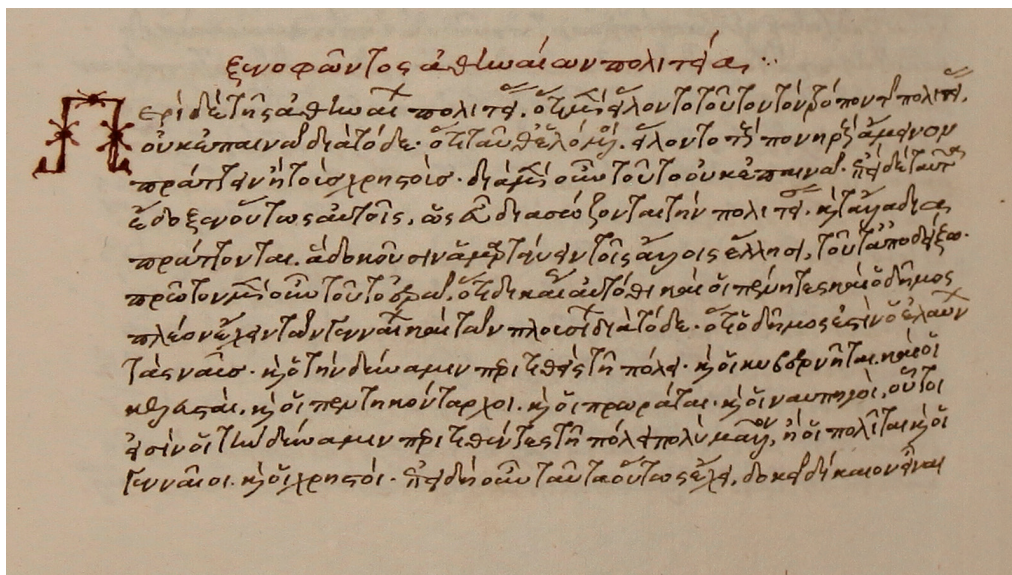 ξενοφῶντος ἀθηναίων πολιτεία
Περὶ δὲ τῆς ἀθηναίων πολιτείας, ὅτι μὲν εἵλοντο τοῦτον τὸν τρόπον τῆς πολιτείας,
οὐκ ἐπαινῶ διὰ τόδε· ὅτι ταῦθ' ἑλόμενοι, εἵλοντο τοὺς πονηροὺς ἄμεινον
πράττειν ἢ τοῖς χρηστοῖς· διὰ μὲν οὖν τοῦτο οὐκ ἐπαινῶ· ἐπεὶ δὲ ταῦτα
ἔδοξεν οὕτως αὐτοῖς, ὡς εὖ διασώζονται τὴν πολιτείαν· καὶ τἄλλα δια
πράττονται. ἃ δοκοῦσιν ἁμαρτάνειν ἐν τοῖς ἄλλοις ἕλλησι, τοῦτ' ἀποδείξω·
πρῶτον μὲν οὖν τοῦτο ἐρῶ, ὅτι δικαίως αὐτόθι καὶ οἱ πένητες καὶ ὁ δῆμος
πλέον ἔχειν τῶν γενναίων καὶ τῶν πλουσίων διὰ τόδε· ὅτι ὁ δῆμος ἐστιν ὁ ἐλαύνων
τὰς ναῦς· καὶ ὁ τὴν δύναμιν περιτιθεὶς τῇ πόλει· καὶ οἱ κυβερνῆται. καὶ οἱ
κελευσταὶ. καὶ οἱ πεντηκόνταρχοι. καὶ οἱ πρωρᾶται· καὶ οἱ ναυπηγοὶ, οὗτοί
εἰσιν οἱ τὴν δύναμιν περιτιθέντες τῇ πόλει πολὺ μᾶλλον, ἢ οἱ πολῖται καὶ οἱ
γενναῖοι. καὶ οἱ χρηστοί· ἐπειδὴ οὖν ταῦτα οὕτως ἔχει, δοκεῖ δίκαιον εἶναι